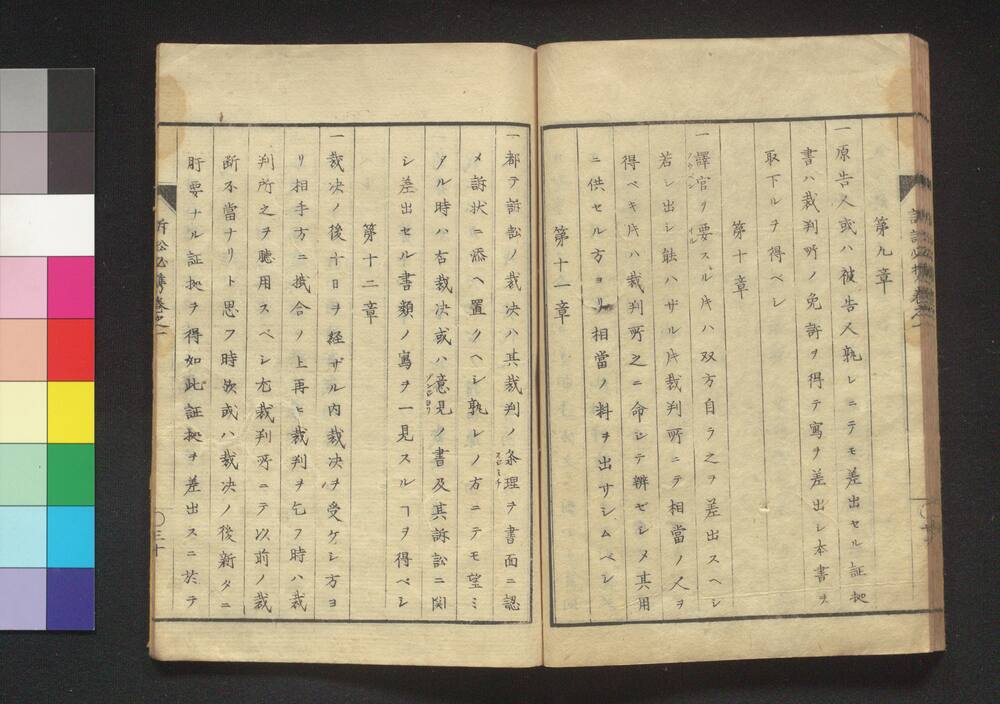 第九章
一原告人或ハ被告人孰レニテモ差出セル証拠
書ハ裁判所ノ免許ヲ得テ寫ヲ差出シ本書ヲ
取下ルヲ得ベシ
第十章
一譯官ヲ要スル片ハ双方自ラ之ヲ差出スヘシ
若シ出シ能ハサル片裁判所ニテ相當ノ人ヲ
得ベキ片ハ裁判所之ニ命シテ辨ゼシメ其用
ニ供セル方ヨリ相當ノ料ヲ出サシムベシ
第十一章
一都テ訴訟ノ裁决ハ其裁判ノ条理ヲ書面ニ認
メ訴状ニ添ヘ置クヘシ孰レノ方ニテモ望ミ
アル時ハ右裁决或ハ意見ノ書及其訴訟ニ関
シ差出セル書類ノ寫ヲ一見スルヿヲ得ベシ
第十二章
一裁决ノ後十日ヲ経ザル内裁决ヲ受ケシ方ヨ
リ相手方ニ掛合ノ上再ヒ裁判ヲ乞フ時ハ裁
判所之ヲ聴用スベシ尤裁判所ニテ以前ノ裁
断不當ナリト思フ時歟或ハ裁决ノ後新タニ
肝要ナル証拠ヲ得如此証拠ヲ差出スニ於テ
訴訟必携巻之一
〇三十